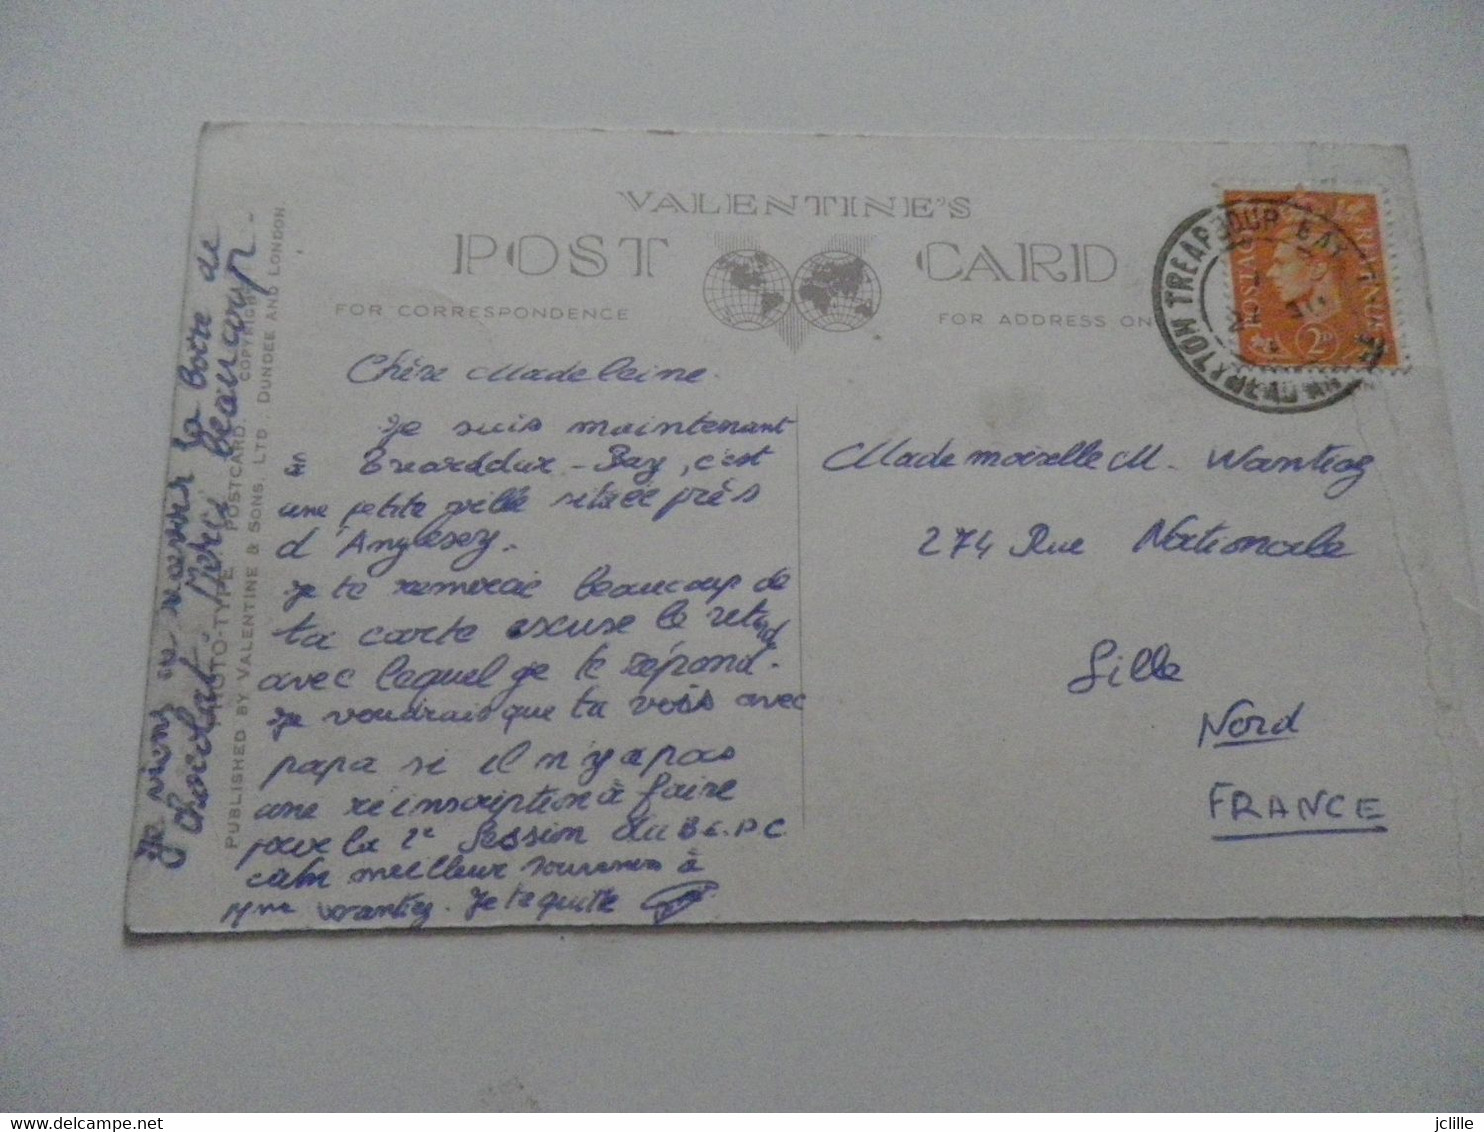 VALENTINE'S
POST CARD
FOR CORRESPONDENCE
FOR ADDRESS ON
Chère Madeleine
Je suis maintenant
à Trearddur-Bay, c'est
une petite ville située près
d'Anglesey.
Je te remercie beaucoup de
ta carte excuse le retard
avec lequel je te répond.
Je voudrais que tu vois avec
papa si il n'y a pas
une réinscription à faire
pour la 2e Session du B.E.P.C
meilleur souvenir à
Mme Wantiez. Je te quitte
Je viens de recevoir la boite de
chocolat Merci beaucoup-
PHOTO-TYPE POSTCARD. COPYRIGHT
PUBLISHED BY VALENTINE & SONS, LTD., DUNDEE AND LONDON
Mademoiselle M. Wantiez
274 Rue Nationale
Lille
Nord
FRANCE
POSTAGE
2D
jclille